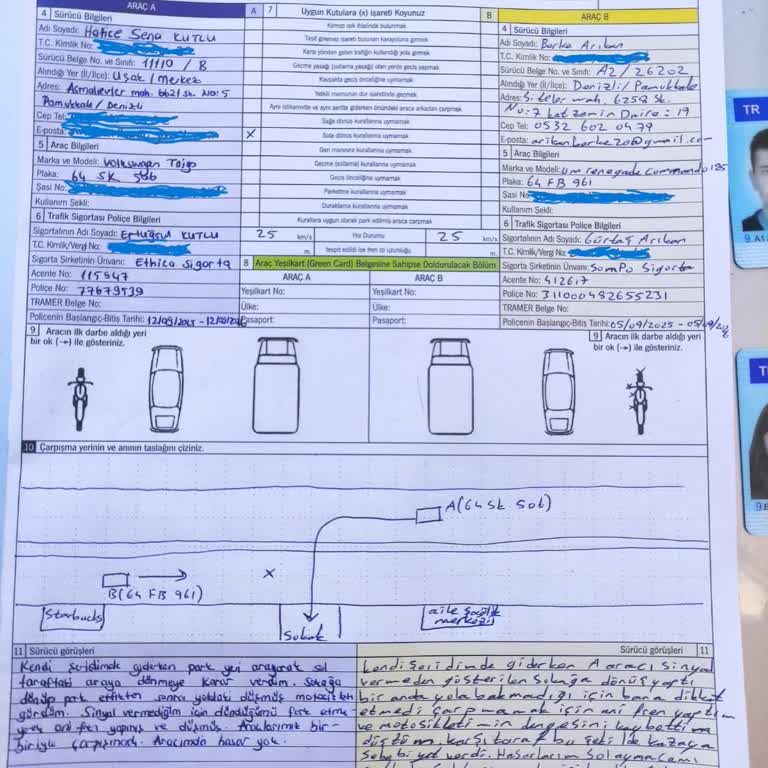 ARAÇ A
A 7 Uygun Kutulara (x) işareti Koyunuz B
ARAÇ B
4 Sürücü Bilgileri
Adı Soyadı: Hatice Sena KUTLU
T.C. Kimlik No:
Sürücü Belge No ve Sınıfı: 11110 / B
Alındığı Yer (İl/İlçe): Uşak / Merkez
Adres: Asmalıevler mah. 6621 sk. No: 5
Pamukkale / Denizli
Cep Tel:
E-posta:
5 Araç Bilgileri
Marka ve Modeli: Volkswagen Taigo
Plaka: 64 SK 506
Şasi No:
Kullanım Şekli:
6 Trafik Sigortası Poliçe Bilgileri
Sigortalının Adı Soyadı: Ertuğrul KUTLU
T.C. Kimlik/Vergi No:
Sigorta Şirketinin Ünvanı: Ethica Sigorta
Acente No: 115547
Poliçe No: 77679539
TRAMER Belge No:
Poliçenin Başlangıç-Bitiş Tarihi:
Kırmızı ışık ihlalinde bulunmak
Taşıt giremez işareti bulunan karayoluna girmek
Karşı yönden gelen trafiğin kullandığı yola girmek
Geçme yasağı (sollama yasağı) olan yerde geçiş yapmak
Kavşakta geçiş önceliğine uymamak
Aynı istikamette ve aynı şeritte giderken önündeki araca arkadan çarpmak
Sağa dönüş kurallarına uymamak
x Sola dönüş kurallarına uymamak
Geri manevra kurallarına uymamak
Geçme (sollama) kurallarına uymamak
Geçiş önceliğine uymamak
Parketme kurallarına uymamak
Duraklama kurallarına uymamak
Kurallara uygun olarak park edilmiş araca çarpmak
25 km/s Hız Durumu 25 km/s
m. tespit edildi ise fren izi uzunluğu m.
8 Araç Yeşilkart (Green Card) Belgesine Sahipse Doldurulacak Bölüm
ARAÇ A ARAÇ B
Yeşilkart No: Yeşilkart No:
Ülke: Ülke:
Pasaport: Pasaport:
4 Sürücü Bilgileri
Adı Soyadı: Berke Arıkan
T.C. Kimlik No:
Sürücü Belge No ve Sınıfı: A2 / 26202
Alındığı Yer (İl/İlçe): Denizli / Pamukkale
Adres: Siteler mah. 6259 Sk.
No: 7 kat zemin Daire: 19
Cep Tel: 0532 602 0479
E-posta: arikanberke20@gmail.com
5 Araç Bilgileri
Marka ve Modeli: um renegade commando 125
Plaka: 64 FB 961
Şasi No:
Kullanım Şekli:
6 Trafik Sigortası Poliçe Bilgileri
Sigortalının Adı Soyadı: Gürtaş Arıkan
T.C. Kimlik/Vergi No:
Sigorta Şirketinin Ünvanı: Sompo Sigorta
Acente No: 412617
Poliçe No: 311000482655231
TRAMER Belge No:
Poliçenin Başlangıç-Bitiş Tarihi: 05/09/2025 -
9 Aracın ilk darbe aldığı yeri
bir ok (→) ile gösteriniz.
9 Aracın ilk darbe aldığı yeri
bir ok (→) ile gösteriniz.
10 Çarpışma yerinin ve anının taslağını çiziniz.
A (64 SK 506)
x
B (64 FB 961)
Starbucks
Sokak
aile sağlık
merkezi
11 Sürücü görüşleri
Kendi şeridimde giderken park yeri arayarak sol
taraftaki araya dönmeye karar verdim. Sokağa
dönüp park ettikten sonra yoldaki düşmüş motosikleti
gördüm. Sinyal vermediğim için döndüğümü fark etme-
yerek ani fren yapmış ve düşmüş. Araçlarımız bir-
biriyle çarpışmadı. Aracımda hasar yok.
Sürücü görüşleri 11
Kendi şeridimde giderken A aracı sinyal
vermeden gösterilen sokağa dönüş yaptı
bir anda yola bakmadığı için bana dikkat
etmedi çarpmamak için ani fren yaptım
ve motosikletimin dengesini kaybettim
düştüm karşı taraf bu şekilde kazaya
sebebiyet verdi.
TR
9.